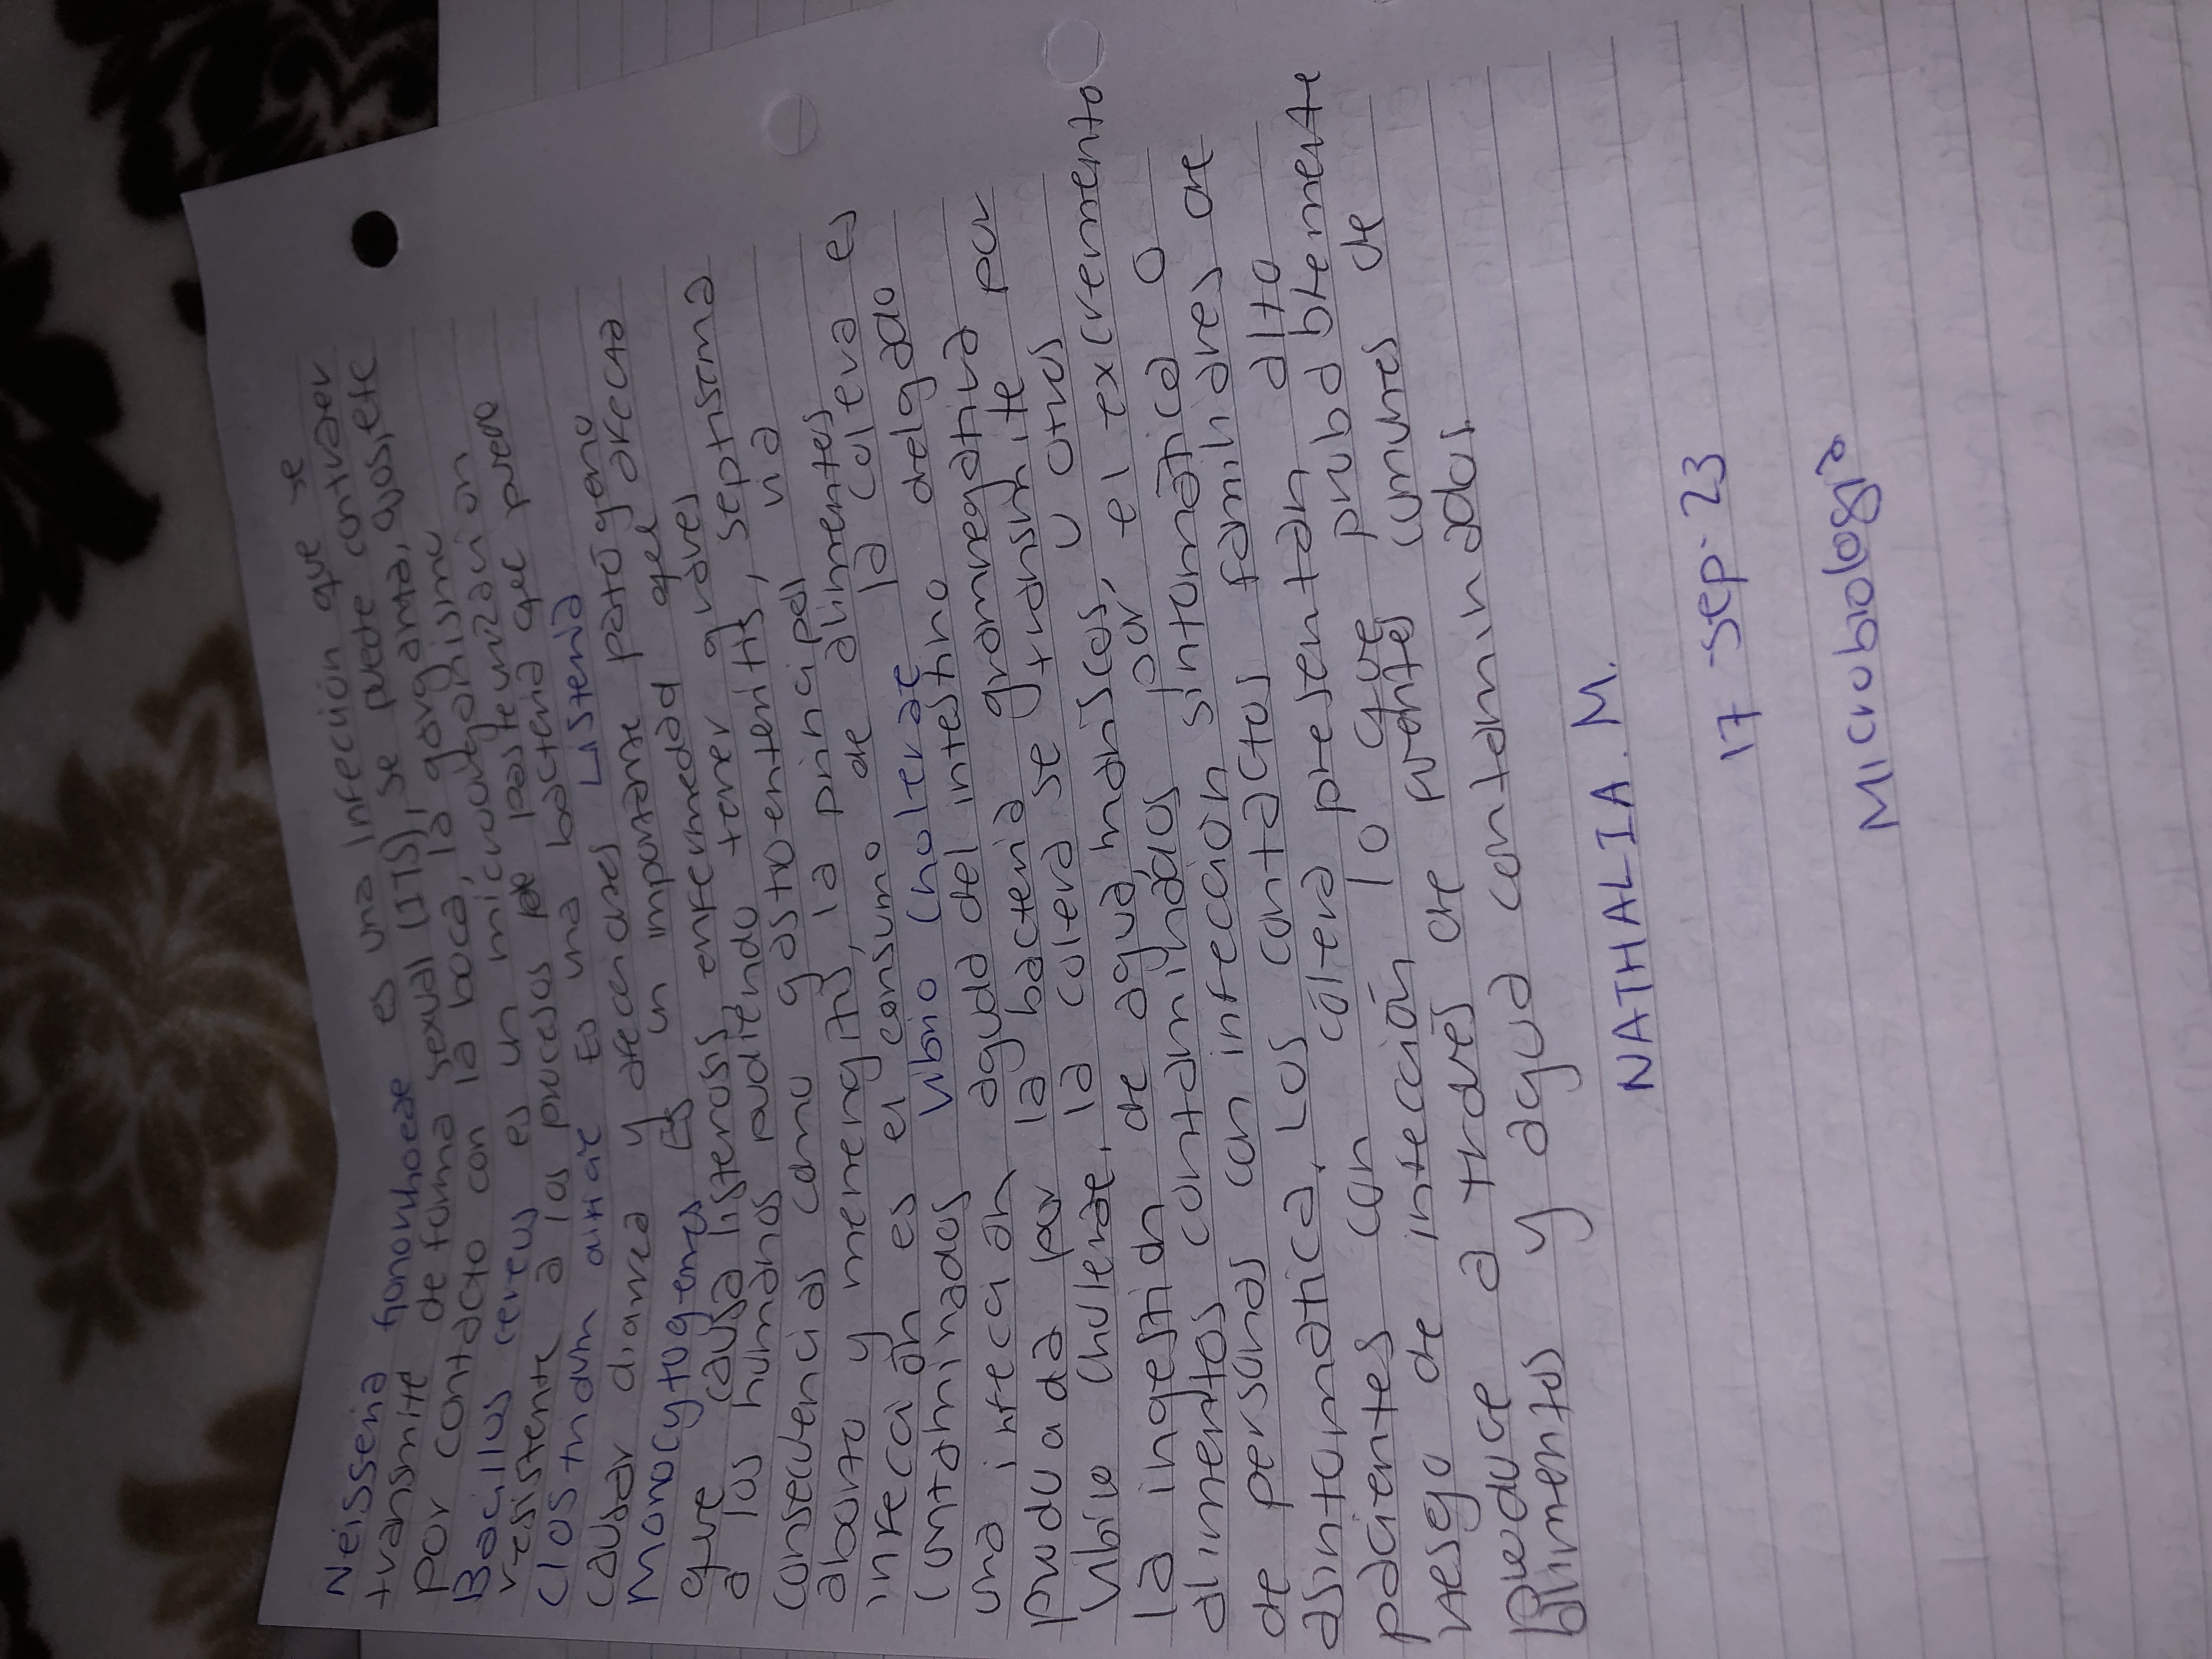 Neisseria gonorrhoeae es una infección que se
transmite de forma sexual (ITS), se puede contraer
por contacto con la boca, la garganta, ojos, etc
Bacillus cereus es un microorganismo
resistente a los procesos de pasteurización
Clostridium difficile es una bacteria que puede
causar diarrea y desencades Listeria
Monocytogenes Es un importante patógeno
que causa listeriosis, enfermedad que afecta
a los humanos pudiendo tener graves
consecuencias como gastroenteritis, septisema
aborto y meningitis, la principal via
infección es el consumo de alimentes
contaminados Vibrio Cholerae la colera es
una infeción aguda del intestino delgado
produada por la bacteria gramnegativa
Vibrio Chulerae, la colera se transmite por
la ingestión de agua, mariscos, u otros
alimentos contaminados por, el excremento
de personas con infección sintomática o
asintomatica. Los contactos familiares de
pacientes con cólera presentan alto
riesgo de infección lo que probablemente
produce a través de fuentes comunes de
Alimentos y agua contaminados.
NATHALIA. M.
17 -Sep- 23
Microbología